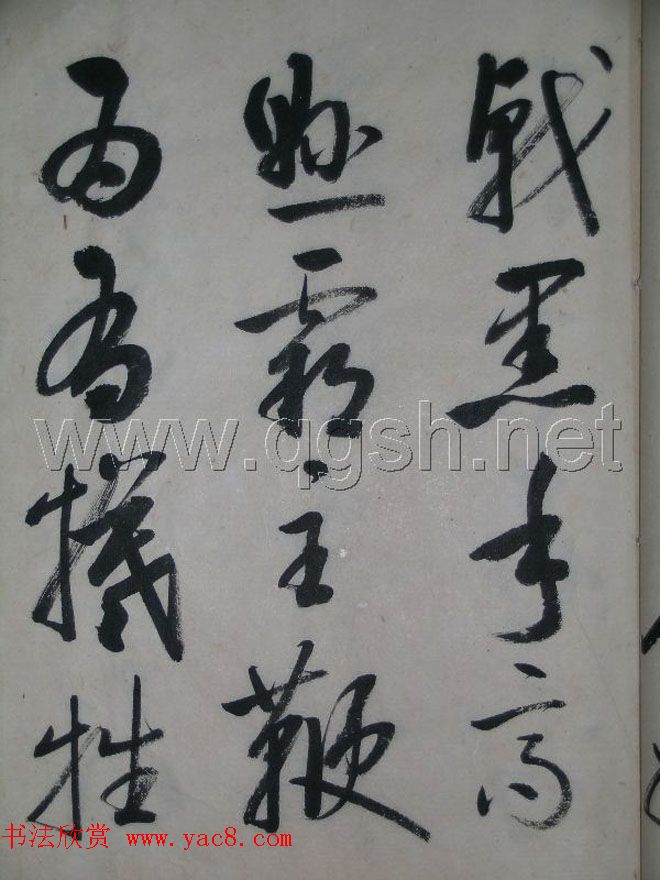 戟黑手高
懸霸主鞭
為有犧牲
www.qgsh.net
书法欣赏 www.yac8.com